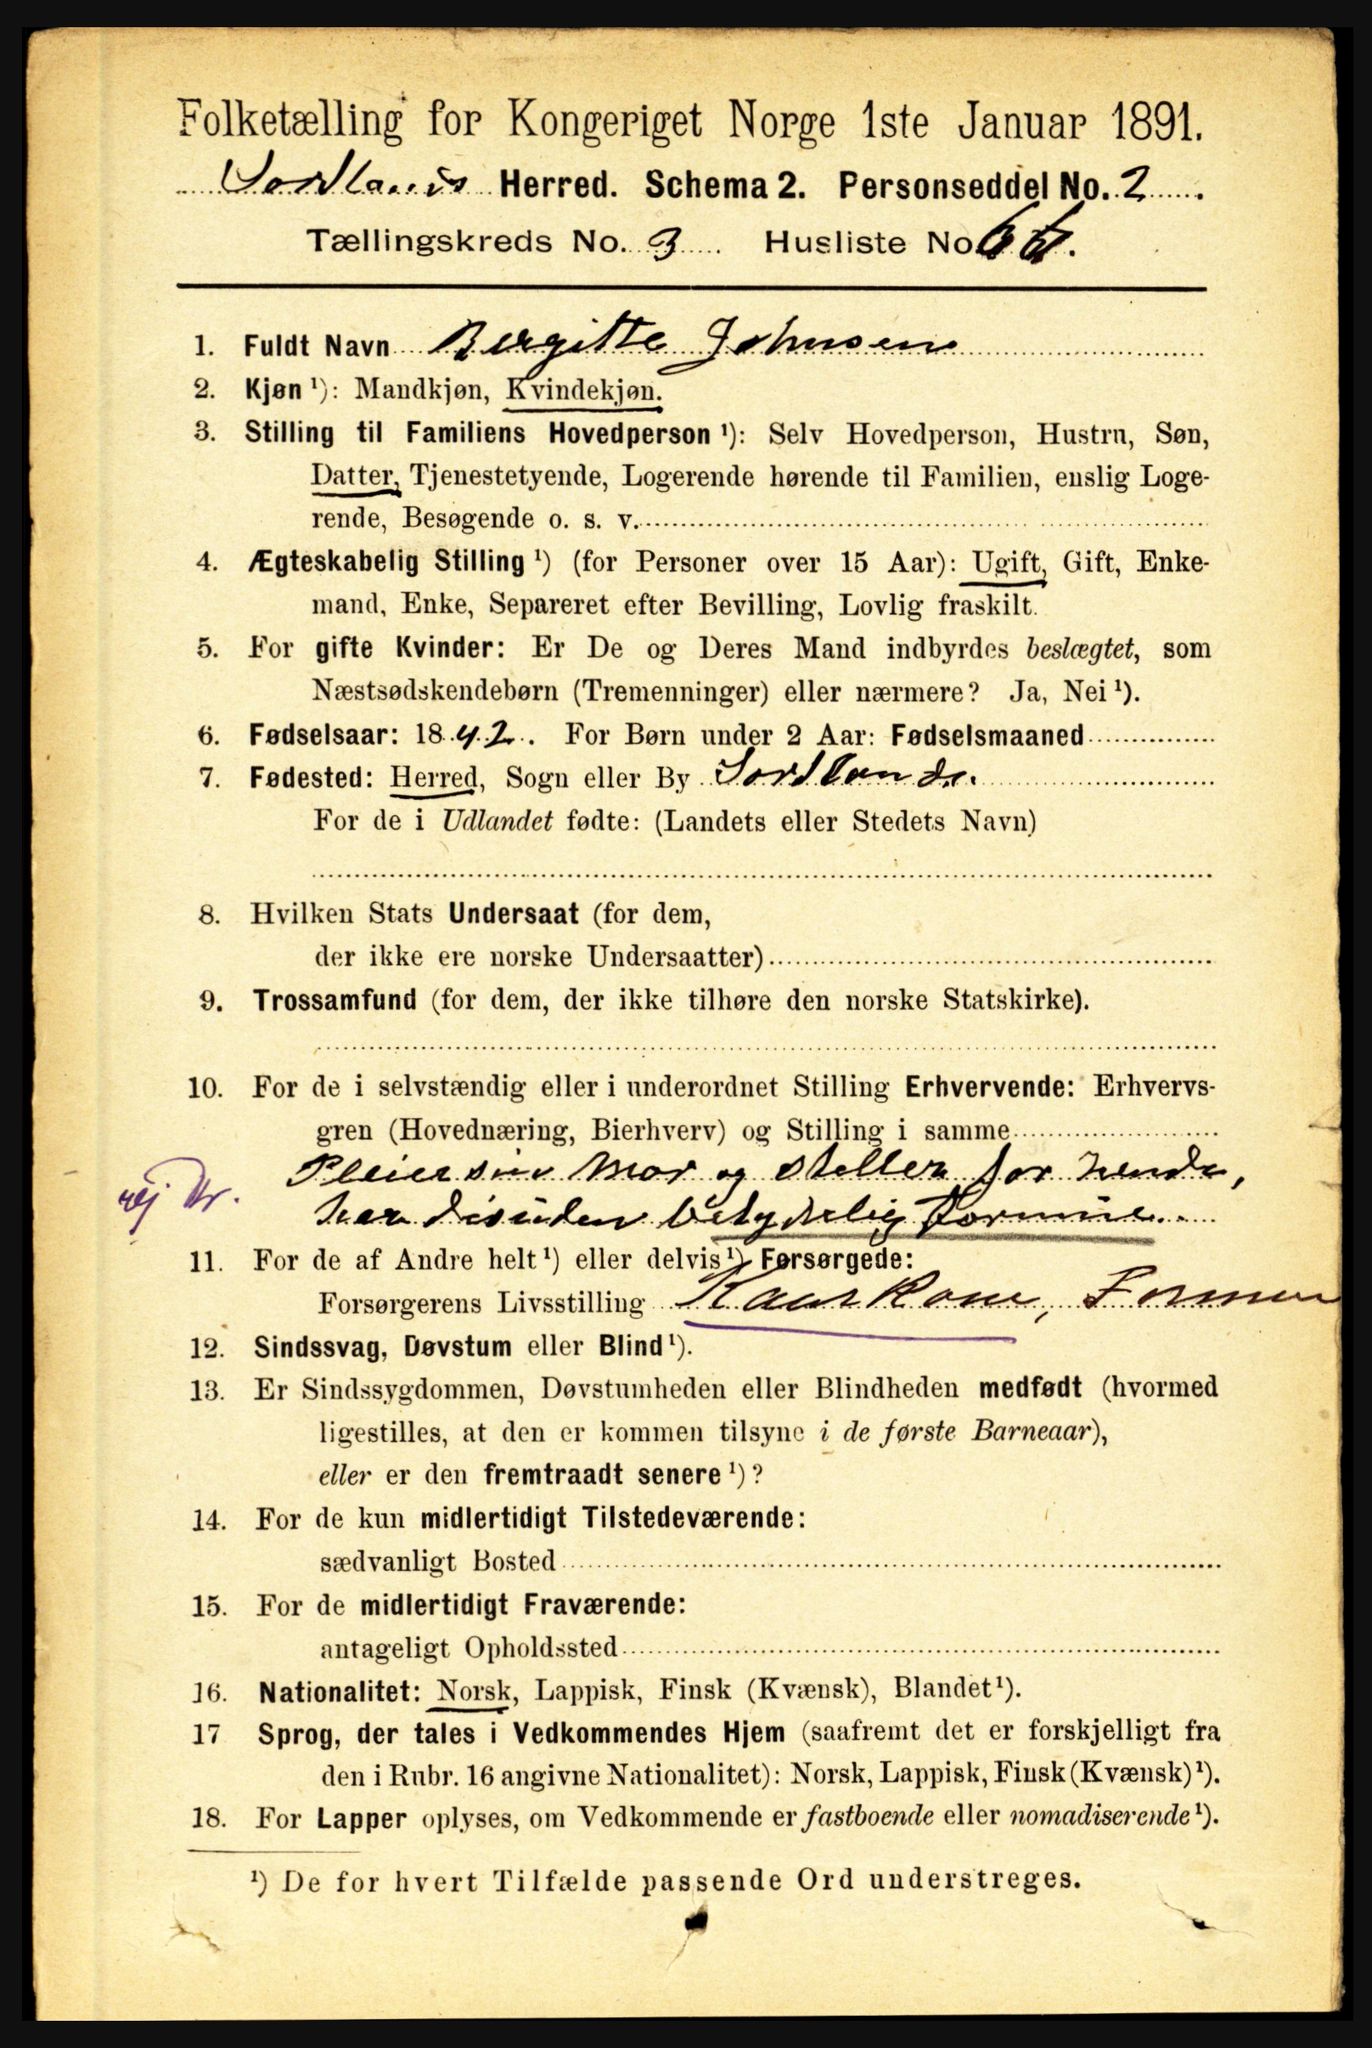 Folketælling for Kongeriget Norge 1ste Januar 1891.
Sortlands Herred. Schema 2. Personseddel No. 2.
Tællingskreds No. 3 Husliste No
1. Fuldt Navn Bergitte Johnsen
2. Kjøn ¹): Mandkjøn, Kvindekjøn.
3. Stilling til Familiens Hovedperson ¹): Selv Hovedperson, Hustru, Søn,
Datter, Tjenestetyende, Logerende hørende til Familien, enslig Loge-
rende, Besøgende o. s. v.
4. Ægteskabelig Stilling ¹) (for Personer over 15 Aar): Ugift, Gift, Enke-
mand, Enke, Separeret efter Bevilling, Lovlig fraskilt.
5. For gifte Kvinder: Er De og Deres Mand indbyrdes beslægtet, som
Næstsødskendebørn (Tremenninger) eller nærmere? Ja, Nei ¹).
6. Fødselsaar: 1842. For Børn under 2 Aar: Fødselsmaaned
7. Fødested: Herred, Sogn eller By Sortlands.
For de i Udlandet fødte: (Landets eller Stedets Navn)
8. Hvilken Stats Undersaat (for dem,
der ikke ere norske Undersaatter)
9. Trossamfund (for dem, der ikke tilhøre den norske Statskirke).
10. For de i selvstændig eller i underordnet Stilling Erhvervende: Erhvervs-
gren (Hovednæring, Bierhverv) og Stilling i samme
Pleier sin Mor og steller for hende,
har desuden betydelig Formue.
11. For de af Andre helt ¹) eller delvis ¹) Forsørgede:
Forsørgerens Livsstilling Kaarkone, Formue
12. Sindssvag, Døvstum eller Blind ¹).
13. Er Sindssygdommen, Døvstumheden eller Blindheden medfødt (hvormed
ligestilles, at den er kommen tilsyne i de første Barneaar),
eller er den fremtraadt senere ¹)?
14. For de kun midlertidigt Tilstedeværende:
sædvanligt Bosted
15. For de midlertidigt Fraværende:
antageligt Opholdssted
16. Nationalitet: Norsk, Lappisk, Finsk (Kvænsk), Blandet ¹).
17 Sprog, der tales i Vedkommendes Hjem (saafremt det er forskjelligt fra
den i Rubr. 16 angivne Nationalitet): Norsk, Lappisk, Finsk (Kvænsk) ¹).
18. For Lapper oplyses, om Vedkommende er fastboende eller nomadiserende ¹).
¹) De for hvert Tilfælde passende Ord understreges.